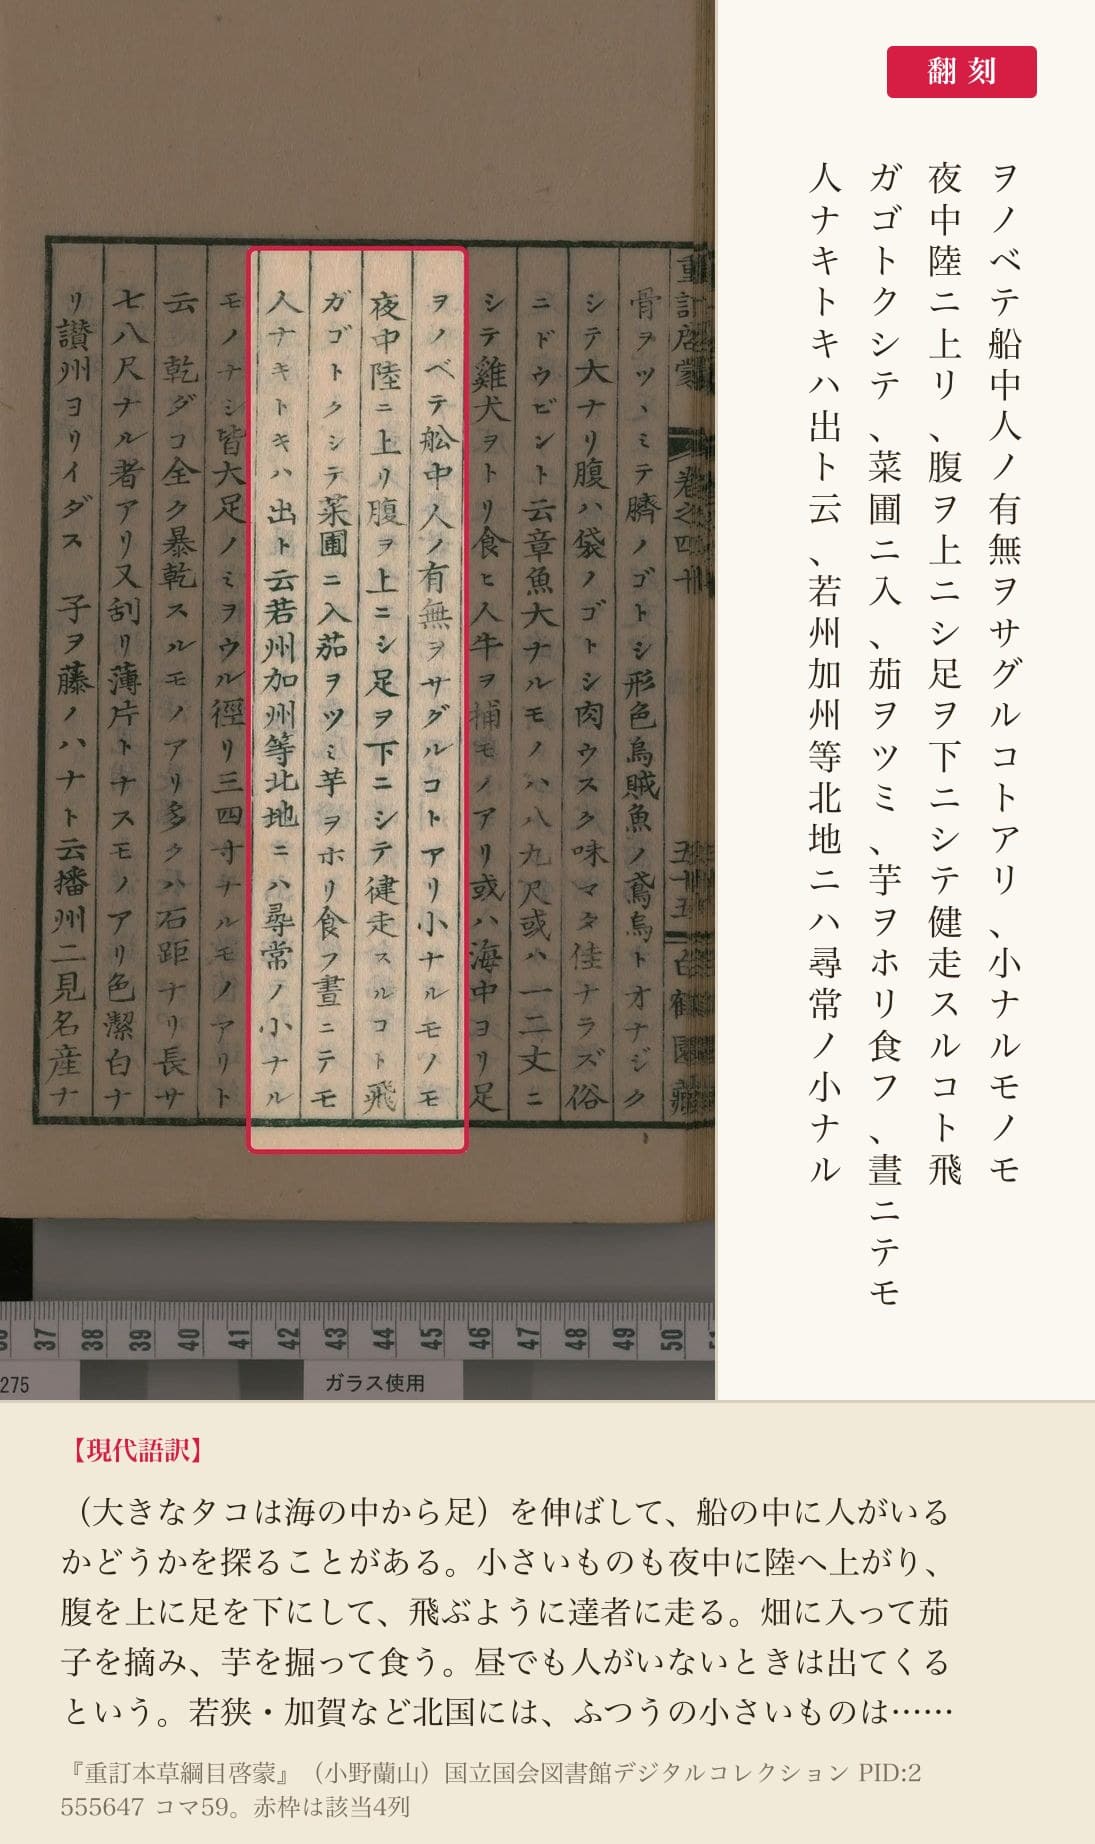 重訂啓蒙 卷之四十 五十五 白鶴園藏
骨ヲツヽミテ臍ノゴトシ形色烏賊魚ノ鳶烏トオナジク
シテ大ナリ腹ハ袋ノゴトシ肉ウスク味マタ佳ナラズ俗
ニドウビント云章魚大ナルモノハ八九尺或ハ一二丈ニ
シテ雞犬ヲトリ食ヒ人牛ヲ捕モノアリ或ハ海中ヨリ足
ヲノベテ舩中人ノ有無ヲサグルコトアリ小ナルモノモ
夜中陸ニ上リ腹ヲ上ニシ足ヲ下ニシテ健走スルコト飛
ガゴトクシテ菜圃ニ入茄ヲツミ芋ヲホリ食フ晝ニテモ
人ナキトキハ出ト云若州加州等北地ニハ尋常ノ小ナル
モノナシ皆大足ノミヲウル徑リ三四寸ナルモノアリト
云 乾ダコ全ク暴乾スルモノアリ多クハ石距ナリ長サ
七八尺ナル者アリ又刮リ薄片トナスモノアリ色潔白ナ
リ讃州ヨリイダス 子ヲ藤ノハナト云播州二見名産ナ
37 38 39 40 41 42 43 44 45 46 47 48 49 50
275
ガラス使用
翻刻
ヲノベテ船中人ノ有無ヲサグルコトアリ、小ナルモノモ
夜中陸ニ上リ、腹ヲ上ニシ足ヲ下ニシテ健走スルコト飛
ガゴトクシテ、菜圃ニ入、茄ヲツミ、芋ヲホリ食フ、晝ニテモ
人ナキトキハ出ト云、若州加州等北地ニハ尋常ノ小ナル
【現代語訳】
（大きなタコは海の中から足）を伸ばして、船の中に人がいる
かどうかを探ることがある。小さいものも夜中に陸へ上がり、
腹を上に足を下にして、飛ぶように達者に走る。畑に入って茄
子を摘み、芋を掘って食う。昼でも人がいないときは出てくる
という。若狭・加賀など北国には、ふつうの小さいものは……
『重訂本草綱目啓蒙』（小野蘭山）国立国会図書館デジタルコレクション PID:2
555647 コマ59。赤枠は該当4列